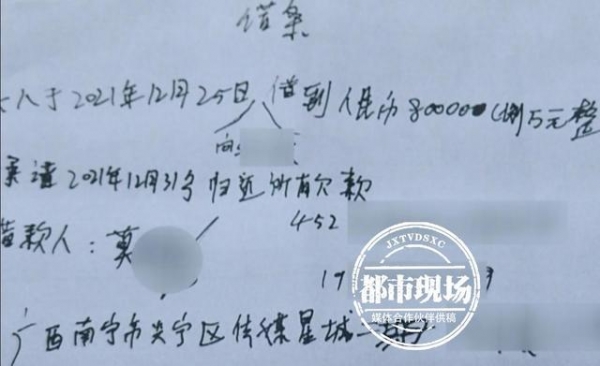 借条
人于2021年12月25日借到人民币80000(捌万元整
向
承诺2021年12月31号归还所有欠款
借款人:莫
452
19
广西南宁市兴宁区传媒星城一
JXTVDSXC
都市现场
媒体合作伙伴供稿